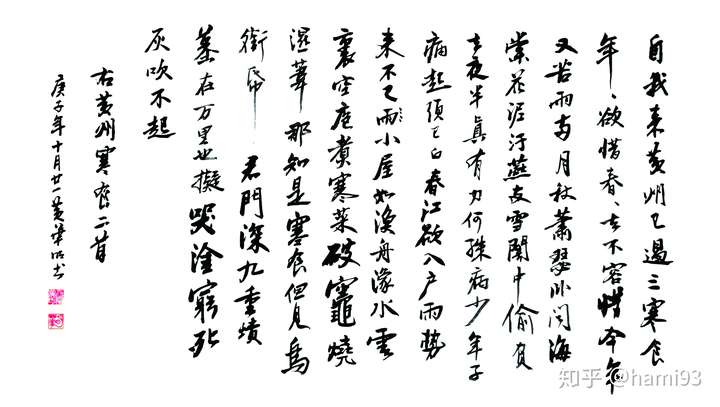 自我来黄州已過三寒食
年、欲惜春、去不容惜今年
又苦雨两月秋蕭瑟卧闻海
棠花泥汙燕支雪闇中偷負
去夜半真有力何殊病少年子
病起頭已白春江欲入户雨勢
来不已雨小屋如漁舟濛水雲
裏空庖煮寒菜破竈燒
濕葦那知是寒食但見烏
銜帋君門深九重墳
墓在万里也擬哭塗窮死
灰吹不起
右黄州寒食二首
庚子年十月廿一黄书
知乎 @hami93